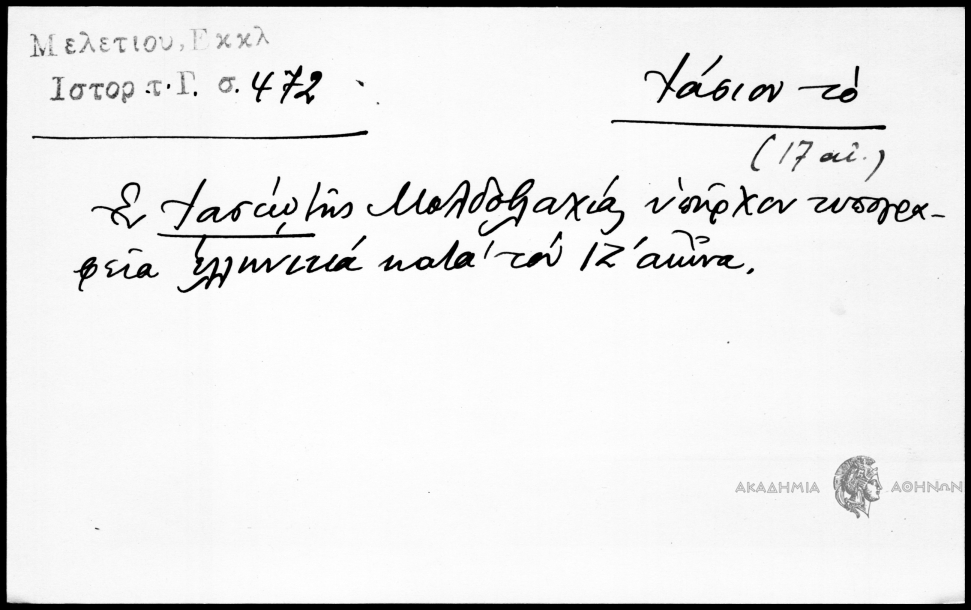 Μελετιου, Εκκλ
Ιστορ. τ. Γ. σ. 472
Ἰάσιον τὸ
(17 αἰ.)
Ἐν Ἰασίῳ τῆς Μολδοβλαχίας ὑπῆρχον τυπογρα-
φεῖα ἑλληνικά κατά τόν ΙΖ΄ αἰῶνα.
ΑΚΑΔΗΜΙΑ ΑΘΗΝΩΝ